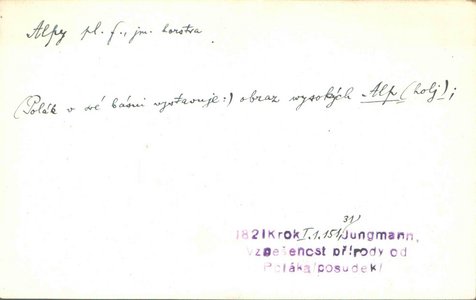 Alpy pl. f., jm. horstva
(Polák v své básni wystavuje:) obraz wysokých Alp (holj);
1821 Krok I.1.151, Jungmann,
Vznešenost přírody od
Poláka/posudek/